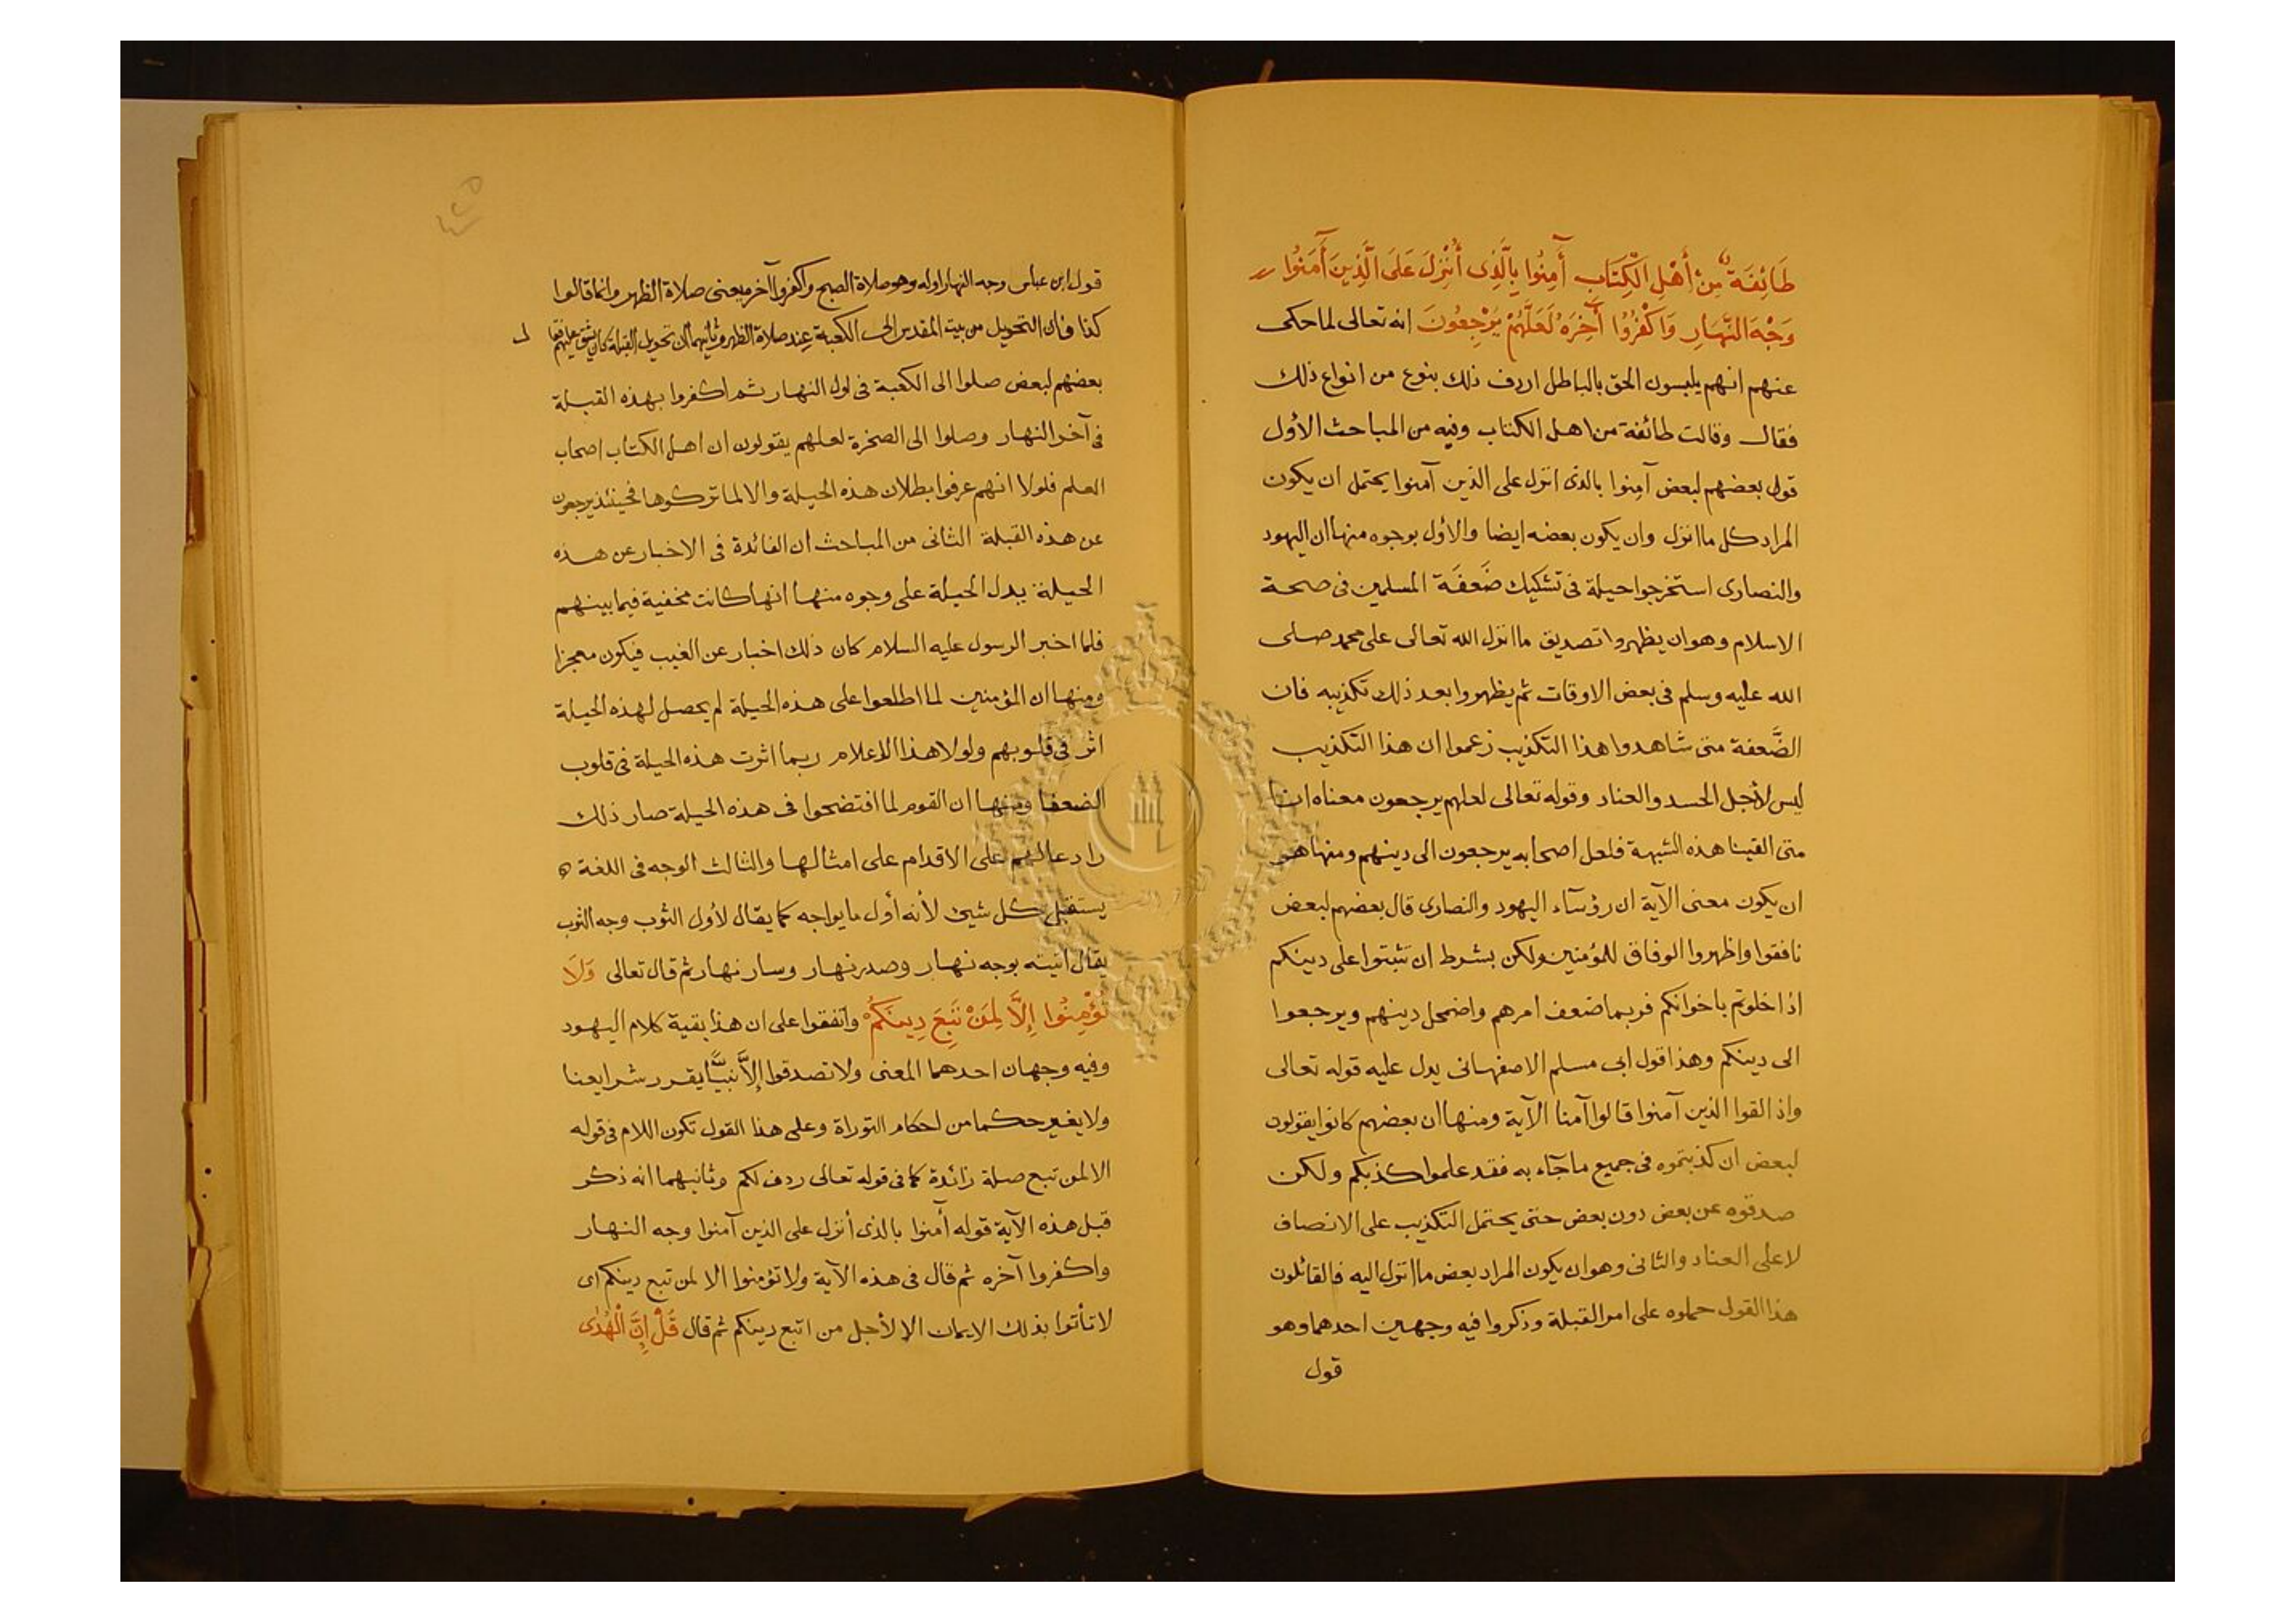 طَائِفَةٌ مِنْ أَهْلِ الْكِتَابِ آَمِنُوا بِالَّذِى أُنْزِلَ عَلَى الَّذِينَ آَمَنُوا
وَجْهَ النَّهَارِ وَاكْفُرُوا آَخِرَهُ لَعَلَّهُمْ يَرْجِعُونَ انه تعالى لما حكى
عنهم انهم يلبسون الحق بالباطل اردف ذلك بنوع من انواع ذلك
فقال وقالت طائفة من اهل الكتاب وفيه من المباحث الأول
قول بعضهم لبعض آمِنوا بالذى انزل على الذين آمنوا يحتمل ان يكون
المراد كل ما انزل وان يكون بعضه ايضا والأول بوجوه منها ان اليهود
والنصارى استخرجوا حيلة فى تشكيك ضَعفَة المسلمين فى صحة
الاسلام وهو ان يظهروا تصديق ما انزل الله تعالى على محمد صلى
الله عليه وسلم فى بعض الاوقات ثم يظهروا بعد ذلك تكذيبه فان
الضَّعفة متى شاهدوا هذا التكذيب زعموا ان هذا التكذيب
ليس لأجل الحسد والعناد وقوله تعالى لعلهم يرجعون معناه انا
متى القينا هذه الشبهة فلعل اصحابه يرجعون الى دينهم ومنها هو
ان يكون معنى الآية ان رؤسآء اليهود والنصارى قال بعضهم لبعض
نافقوا واظهروا الوفاق للمؤمنين ولكن بشرط ان تثبتوا على دينكم
اذا خلوتم باخوانكم فربما ضعف امرهم واضمحل دينهم ويرجعوا
الى دينكم وهذا قول ابى مسلم الاصفهانى يدل عليه قوله تعالى
واذ القوا الذين آمنوا قالوا آمنا الآية ومنها ان بعضهم كانوا يقولون
لبعض ان كذبتموه فى جميع ما جآء به فقد علموا كذبكم ولكن
صدقوه عن بعض دون بعض حتى يحتمل التكذيب على الانصاف
لا على العناد والثانى وهو ان يكون المراد بعض ما انزل اليه فالقائلون
هذا القول حملوه على امر القبلة وذكروا فيه وجهين احدهما وهو
قول
قول ابن عباس وجه النهار اوله وهو صلاة الصبح واكفروا آخره يعنى صلاة الظهر وانما قالوا
كذا فان التحويل من بيت المقدس الى الكعبة عند صلاة الظهر وثانيهما ان تحويل القبلة كان يشق عليهم فقا
ل
بعضهم لبعض صلوا الى الكعبة فى اول النهار ثم اكفروا بهذه القبلة
فى آخر النهار وصلوا الى الصخرة لعلهم يقولون ان اهل الكتاب اصحاب
العلم فلولا انهم عرفوا بطلان هذه الحيلة والا لما تركوها فحينئذ يرجعون
عن هذه القبلة الثانى من المباحث ان الفائدة فى الاخبار عن هذه
الحيلة يدل الحيلة على وجوه منها انها كانت مخفية فيما بينهم
فلما اخبر الرسول عليه السلام كان ذلك اخبار عن الغيب فيكون معجزا
ومنها ان المؤمنين لما اطلعوا على هذه الحيلة لم يحصل لهذه الحيلة
اثر فى قلوبهم ولولا هذا الاعلام ربما اثرت هذه الحيلة فى قلوب
الضعفا ومنها ان القوم لما افتضحوا فى هذه الحيلة صار ذلك
رادعا لهم على الاقدام على امثالها والثالث الوجه فى اللغة
يستقبل كل شيئ لأنه أول ما يواجه كما يقال لأول الثوب وجه الثوب
يقال اتيته بوجه نهار وصدر نهار وسار نهار ثم قال تعالى وَلَا
تُؤْمِنُوا إِلَّا لِمَنْ تَبِعَ دِينَكُمْ واتفقوا على ان هذا بقية كلام اليهود
وفيه وجهان احدهما المعنى ولا تصدقوا إِلَّا نبيًّا يقرر شرايعنا
ولا يغير حكما من احكام التوراة وعلى هذا القول تكون اللام فى قوله
الا لمن تبع صلة زائدة كما فى قوله تعالى ردف لكم وثانيهما انه ذكر
قبل هذه الآية قوله آمنوا بالذى أنزل على الذين آمنوا وجه النهار
واكفروا آخره ثم قال فى هذه الآية ولا تؤمنوا الا لمن تبع دينكم اى
لا تأتوا بذلك الايمان الا لأجل من اتبع دينكم ثم قال قُلْ إِنَّ الْهُدَى